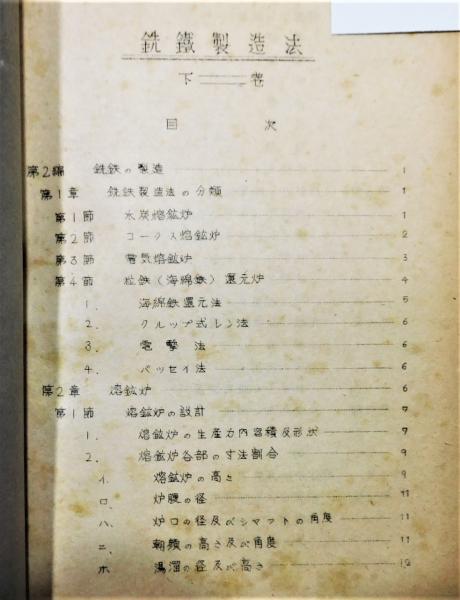 銑鐵製造法
下 巻
目 次
第2編 銑鉄の製造 1
第1章 銑鉄製造法の分類 1
第1節 木炭熔鉱炉 1
第2節 コークス熔鉱炉 2
第3節 電気熔鉱炉 3
第4節 粒鉄(海綿鉄)還元炉 4
1. 海綿鉄還元法 5
2. クルップ式レン法 6
3. 電撃法 6
4. バッセイ法 6
第2章 熔鉱炉 6
第1節 熔鉱炉の設計 7
1. 熔鉱炉の生産力内容積及形状 7
2. 熔鉱炉各部の寸法割合 9
イ. 熔鉱炉の高さ 9
ロ. 炉腹の径 11
ハ. 炉口の径及びシャフトの角度 11
ニ. 朝顔の高さ及び角度 11
ホ. 湯溜の径及び高さ 12